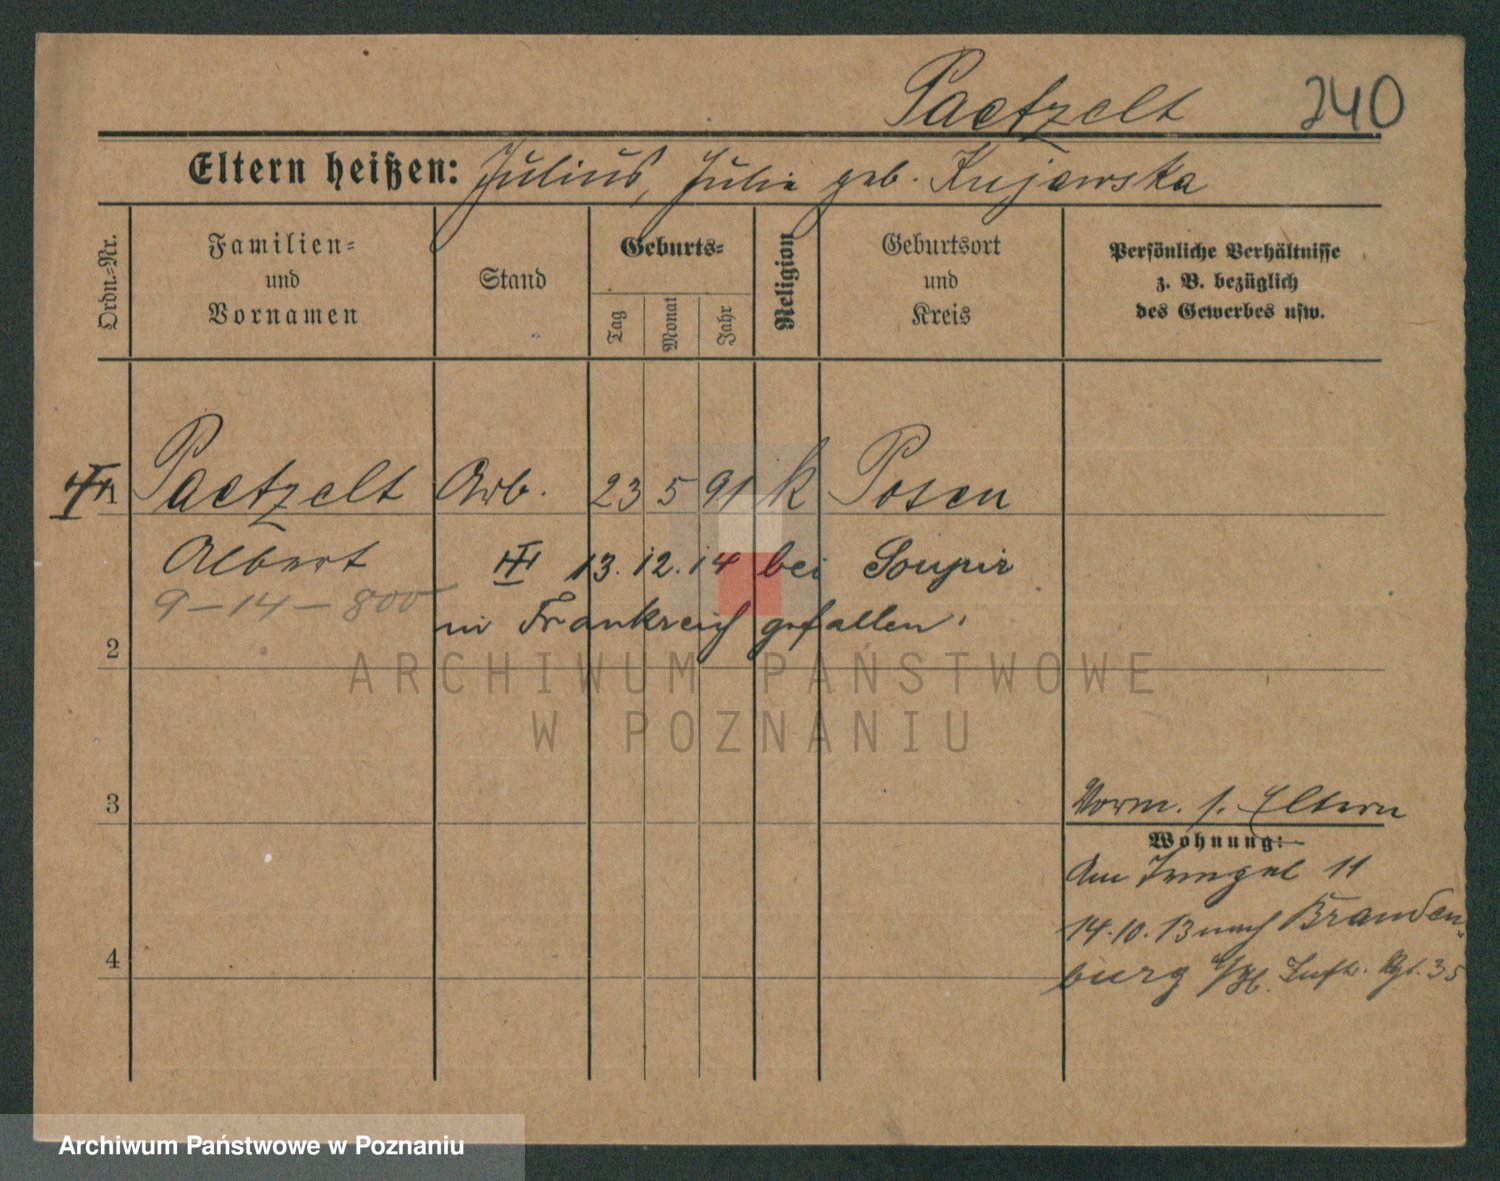 Paetzelt 240
Eltern heißen: Julius, Julie geb. Kujawska
Ordn.=Nr.
Familien=
und
Vornamen
Stand
Geburts=
Tag
Monat
Jahr
Religion
Geburtsort
und
Kreis
Persönliche Verhältnisse
z. B. bezüglich
des Gewerbes usw.
1 Paetzelt Arb. 23 5 91 k Posen
Albert 13. 12. 14 bei Soupir
9-14-800
in Frankreich gefallen.
2
ARCHIWUM PAŃSTWOWE
W POZNANIU
3
Vorm. s. Eltern
Wohnung:
Am 11
14.10.13 nach Branden-
4
burg a/H. Inftr. Rgt. 35
Archiwum Państwowe w Poznaniu